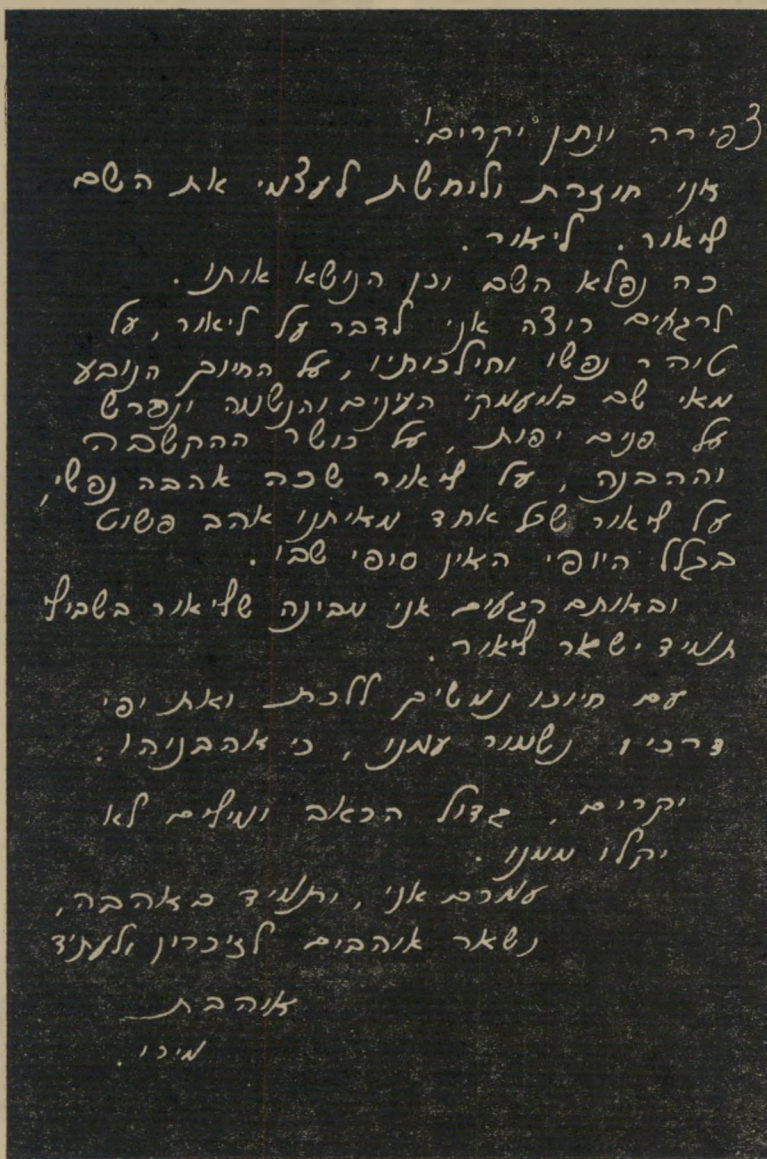 צפירה ונתן יקרים!
אני חוזרת ולוחשת לעצמי את השם
ליאור. ליאור.
כה נפלא השם וכן הנושא אותו.
לרגעים רוצה אני לדבר על ליאור, על
טוהר נפשו והילכותיו, על החיוך הנובע
מאי שם במעמקי העינים והנשמה ונפרש
על פנים יפות, על כושר ההקשבה
וההבנה, על ליאור שכה אהבה נפשי,
על ליאור שכל אחד מאיתנו אהב פשוט
בגלל היופי האין סופי שבו.
ובאותם רגעים אני מבינה שליאור בשבילי
תמיד ישאר ליאור.
עם חיוכו נמשיך ללכת ואת יפי
דרכיו נשמור עמנו, כי אהבניהו.
יקרים, גדול הכאב ומילים לא
יקלו ממנו.
עמכם אני, ותמיד באהבה,
נשאר אוהבים לזיכרון ולעתיד
אוהבת